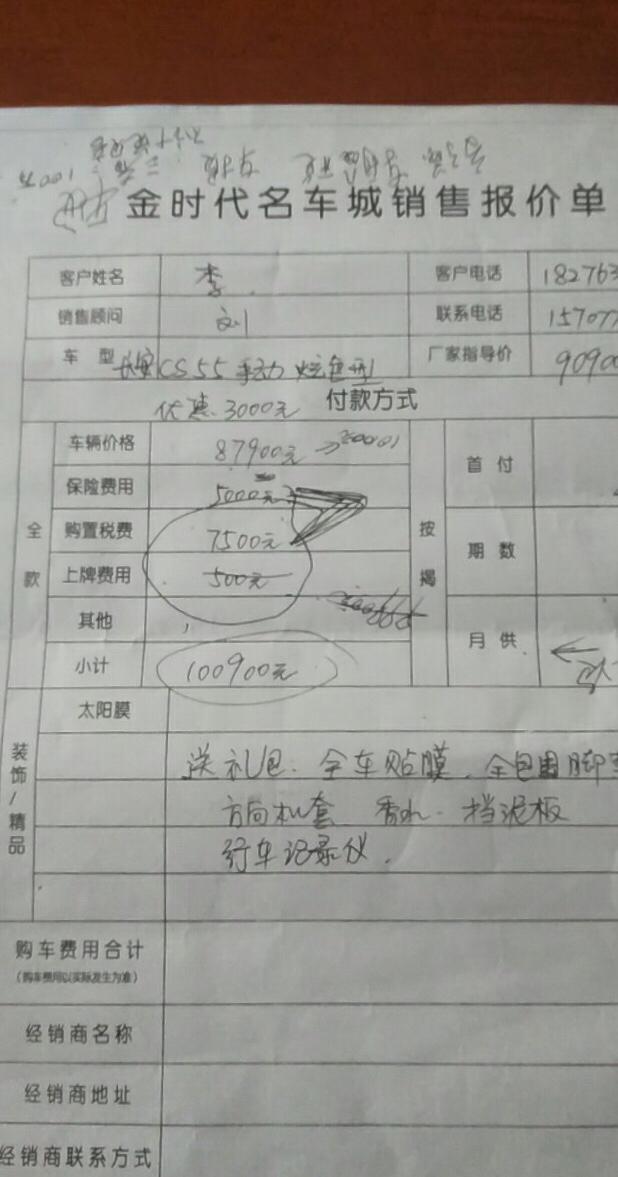 金时代名车城销售报价单
客户姓名 李 客户电话 182763
销售顾问 刘 联系电话 157077
车 型 长安CS55手动 炫色型 厂家指导价 90900
优惠3000元 付款方式
全款 按揭
车辆价格 87900元
首付
保险费用 5000元
购置税费 7500元
期数
上牌费用 500元
其他
月供
小计 100900元
装饰/精品
太阳膜
送礼包: 全车贴膜. 全包围脚
方向机套 香水. 挡泥板
行车记录仪.
购车费用合计
(购车费用以实际发生为准)
经销商名称
经销商地址
经销商联系方式